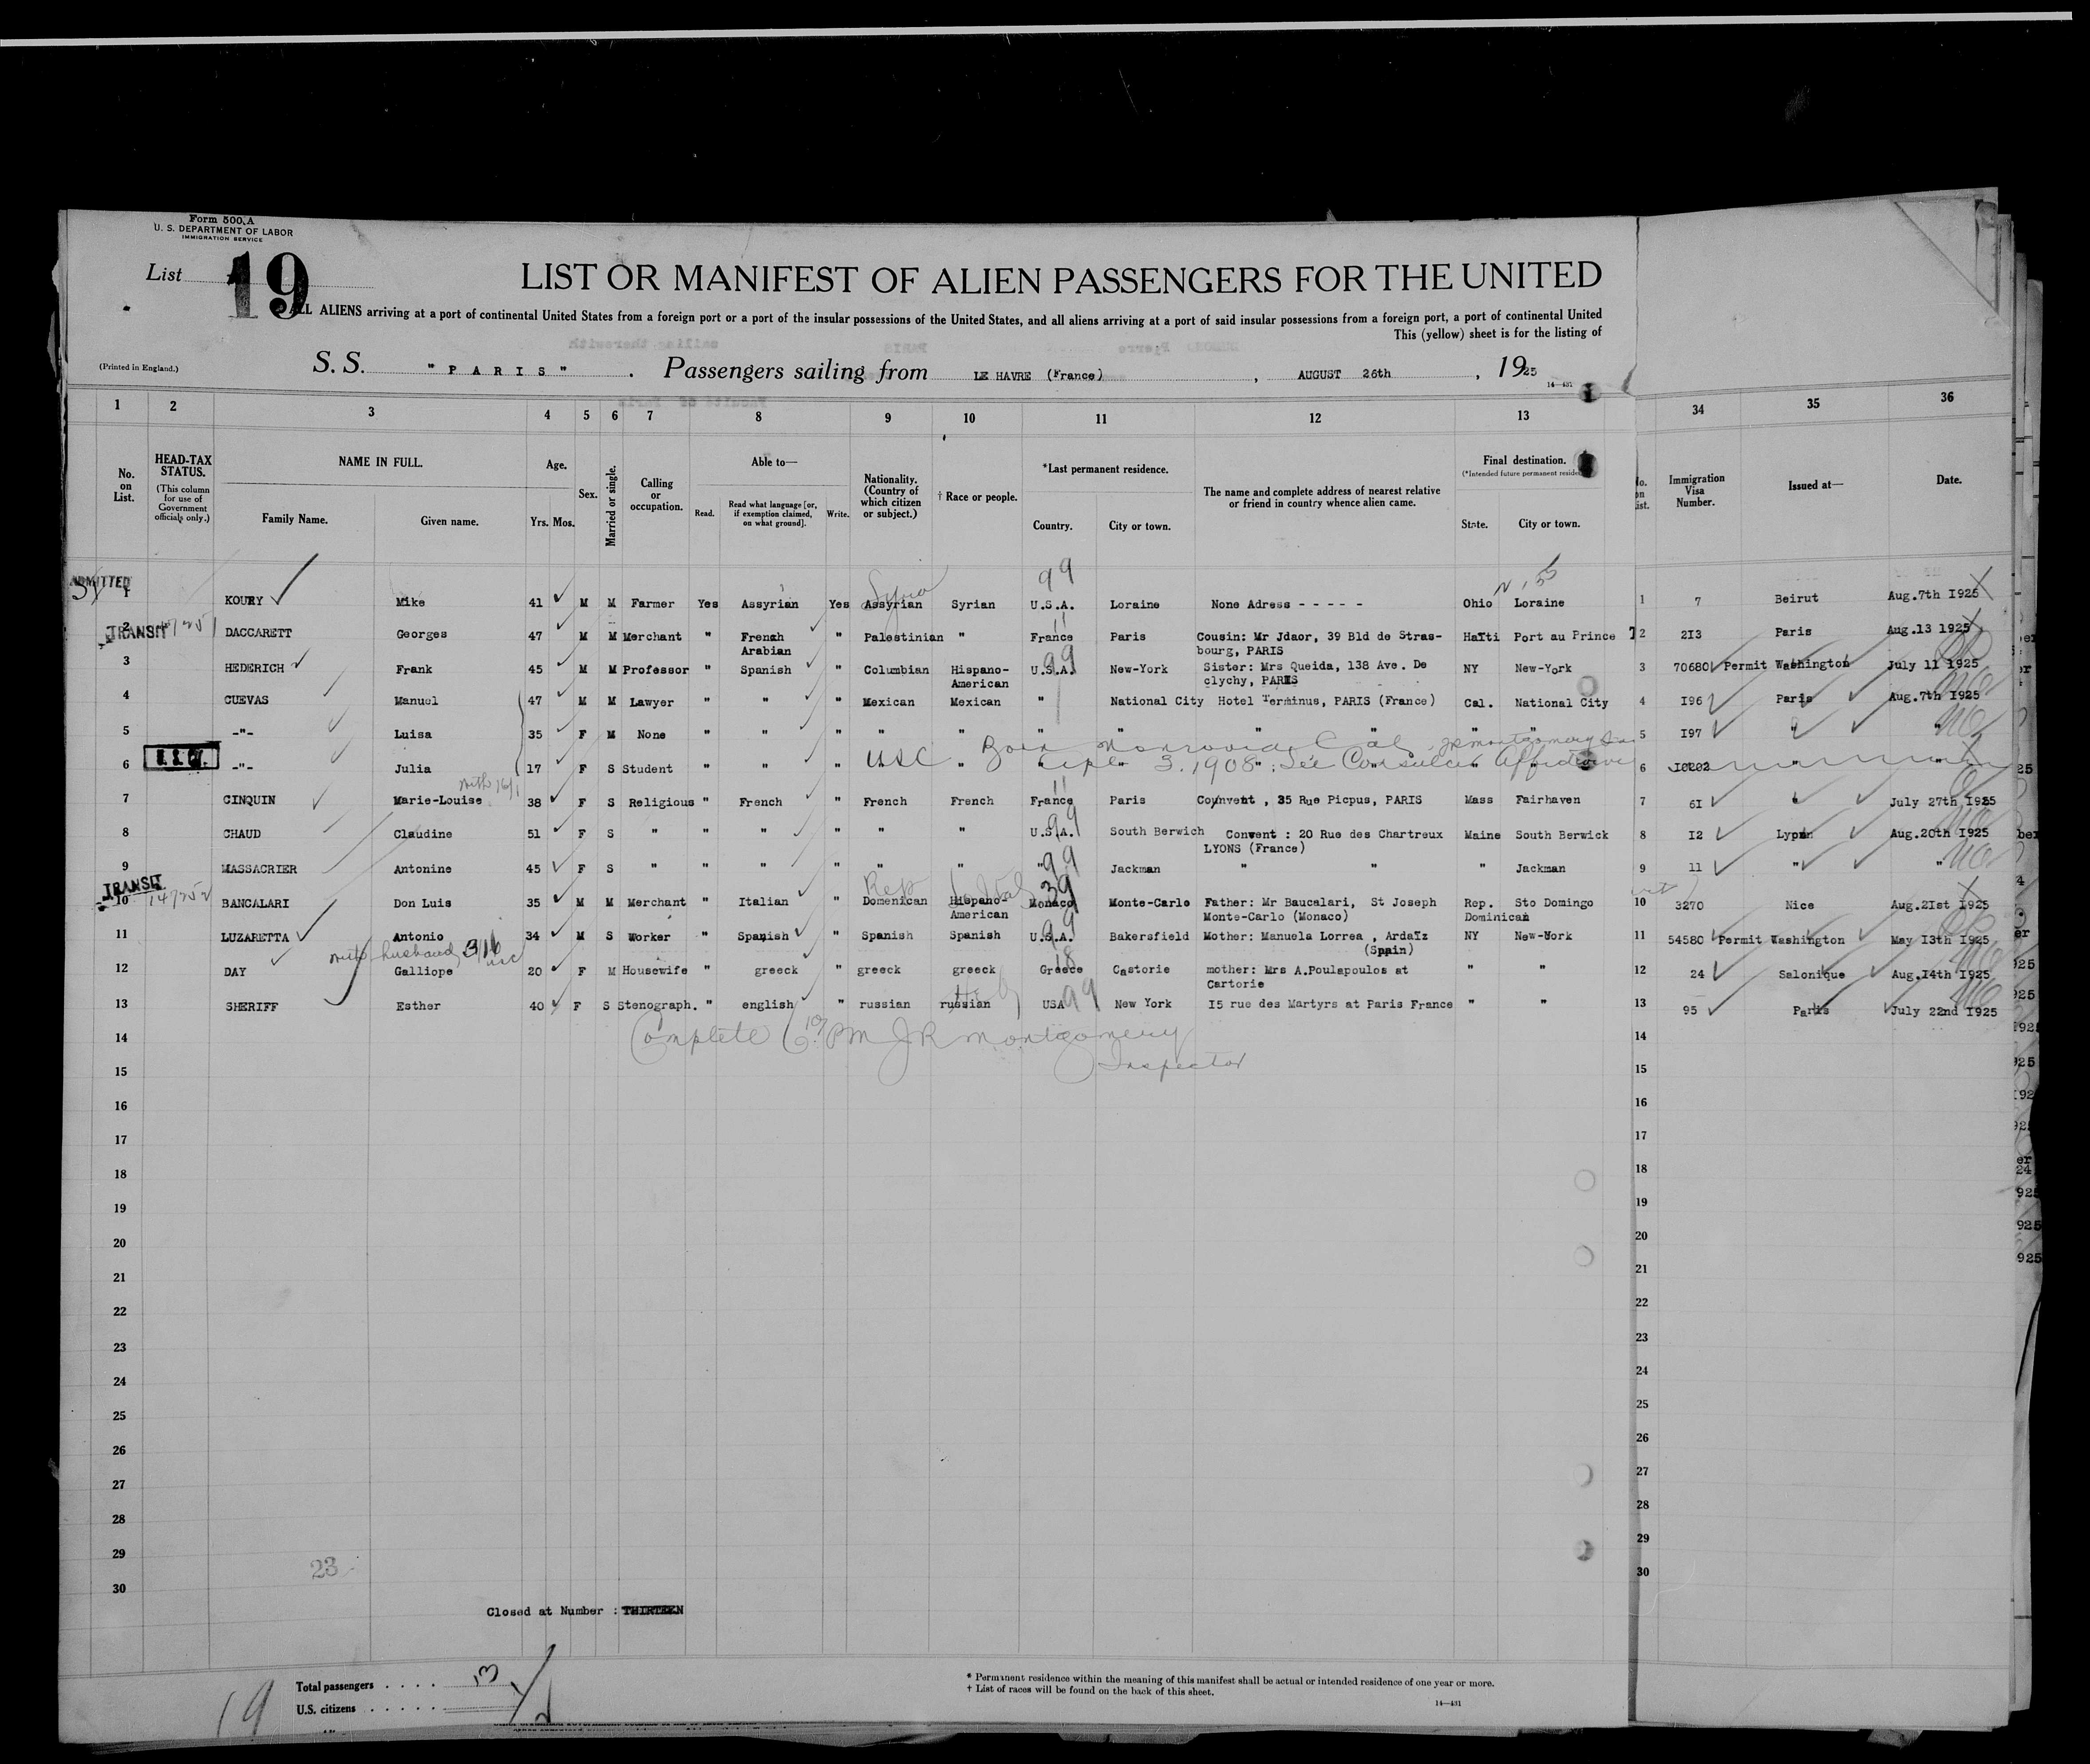 Form 500.A
U. S. DEPARTMENT OF LABOR
IMMIGRATION SERVICE
List 19
LIST OR MANIFEST OF ALIEN PASSENGERS FOR THE UNITED
ALL ALIENS arriving at a port of continental United States from a foreign port or a port of the insular possessions of the United States, and all aliens arriving at a port of said insular possessions from a foreign port, a port of continental United
This (yellow) sheet is for the listing of
(Printed in England.)
S. S. "PARIS" . Passengers sailing from LE HAVRE (France) , AUGUST 26th , 1925
14—431
1 2 3 4 5 6 7 8 9 10 11 12 13 34 35 36
No. on List.
HEAD-TAX STATUS.
(This column for use of Government officials only.)
NAME IN FULL.
Family Name. Given name.
Age.
Yrs. Mos.
Sex.
Married or single.
Calling or occupation.
Able to—
Read. Read what language [or, if exemption claimed, on what ground]. Write.
Nationality. (Country of which citizen or subject.)
† Race or people.
*Last permanent residence.
Country. City or town.
The name and complete address of nearest relative or friend in country whence alien came.
Final destination.
(*Intended future permanent residence
State. City or town.
No. on List.
Immigration Visa Number.
Issued at—
Date.
ADMITTED
99
Syria
1 KOURY Mike 41 M M Farmer Yes Assyrian Yes Assyrian Syrian U.S.A. Loraine None Adress - - - - - Ohio Loraine 1 7 Beirut Aug.7th I925
TRANSIT
11
2 DACCARETT Georges 47 M M Merchant " French " Palestinian " France Paris Cousin: Mr Jdaor, 39 Bld de Stras- Haïti Port au Prince 2 2I3 Paris Aug.13 1925
Arabian bourg, PARIS
99
3 HEDERICH Frank 45 M M Professor " Spanish " Columbian Hispano- U.S.A. New-York Sister: Mrs Queida, 138 Ave. De NY New-York 3 70680 Permit Washington July 11 1925
American clychy, PARIS
4 CUEVAS Manuel 47 M M Lawyer " " " Mexican Mexican " National City Hotel Terminus, PARIS (France) Cal. National City 4 I96 Paris Aug.7th I925
5 -"- Luisa 35 F M None " " " " " " " " " " 5 I97 " "
USC Born Monrovia Cal JRMontgomery
6 -"- Julia 17 F S Student " " " " " " " " " " 6 I0202 " "
Sept 3.1908. See Consular Affidavit
11
7 CINQUIN Marie-Louise 38 F S Religious " French " French French France Paris Convent , 35 Rue Picpus, PARIS Mass Fairhaven 7 6I " July 27th I925
99
8 CHAUD Claudine 51 F S " " " " " " U.S.A. South Berwich Convent : 20 Rue des Chartreux Maine South Berwick 8 I2 Lyon Aug.20th I925
LYONS (France)
99
9 MASSACRIER Antonine 45 F S " " " " " " " Jackman " " " Jackman 9 11 " "
TRANSIT
Rep 39
10 BANCALARI Don Luis 35 M M Merchant " Italian " Domenican Hispano- Monaco Monte-Carlo Father: Mr Baucalari, St Joseph Rep. Sto Domingo 10 3270 Nice Aug.21st I925
American Monte-Carlo (Monaco) Dominican
99
11 LUZARETTA Antonio 34 M S Worker " Spanish " Spanish Spanish U.S.A. Bakersfield Mother: Manuela Lorrea , Ardaïz NY New-York 11 54580 Permit Washington May I3th I925
(Spain)
with husband 3/16 usc
18
12 DAY Galliope 20 F M Housewife " greeck " greeck greeck Greece Castorie mother: Mrs A.Poulapoulos at " " 12 24 Salonique Aug.I4th I925
Cartorie
13 SHERIFF Esther 40 F S Stenograph. " english " russian russian USA 99 New York I5 rue des Martyrs at Paris France " " 13 95 Paris July 22nd I925
Complete PM JR Montgomery
Inspector
14 14
15 15
16 16
17 17
18 18
19 19
20 20
21 21
22 22
23 23
24 24
25 25
26 26
27 27
28 28
29 29
30 30
23
Closed at Number : THIRTEEN
Total passengers . . . . 13
U.S. citizens . . . . . .
19
* Permanent residence within the meaning of this manifest shall be actual or intended residence of one year or more.
† List of races will be found on the back of this sheet.
14—431